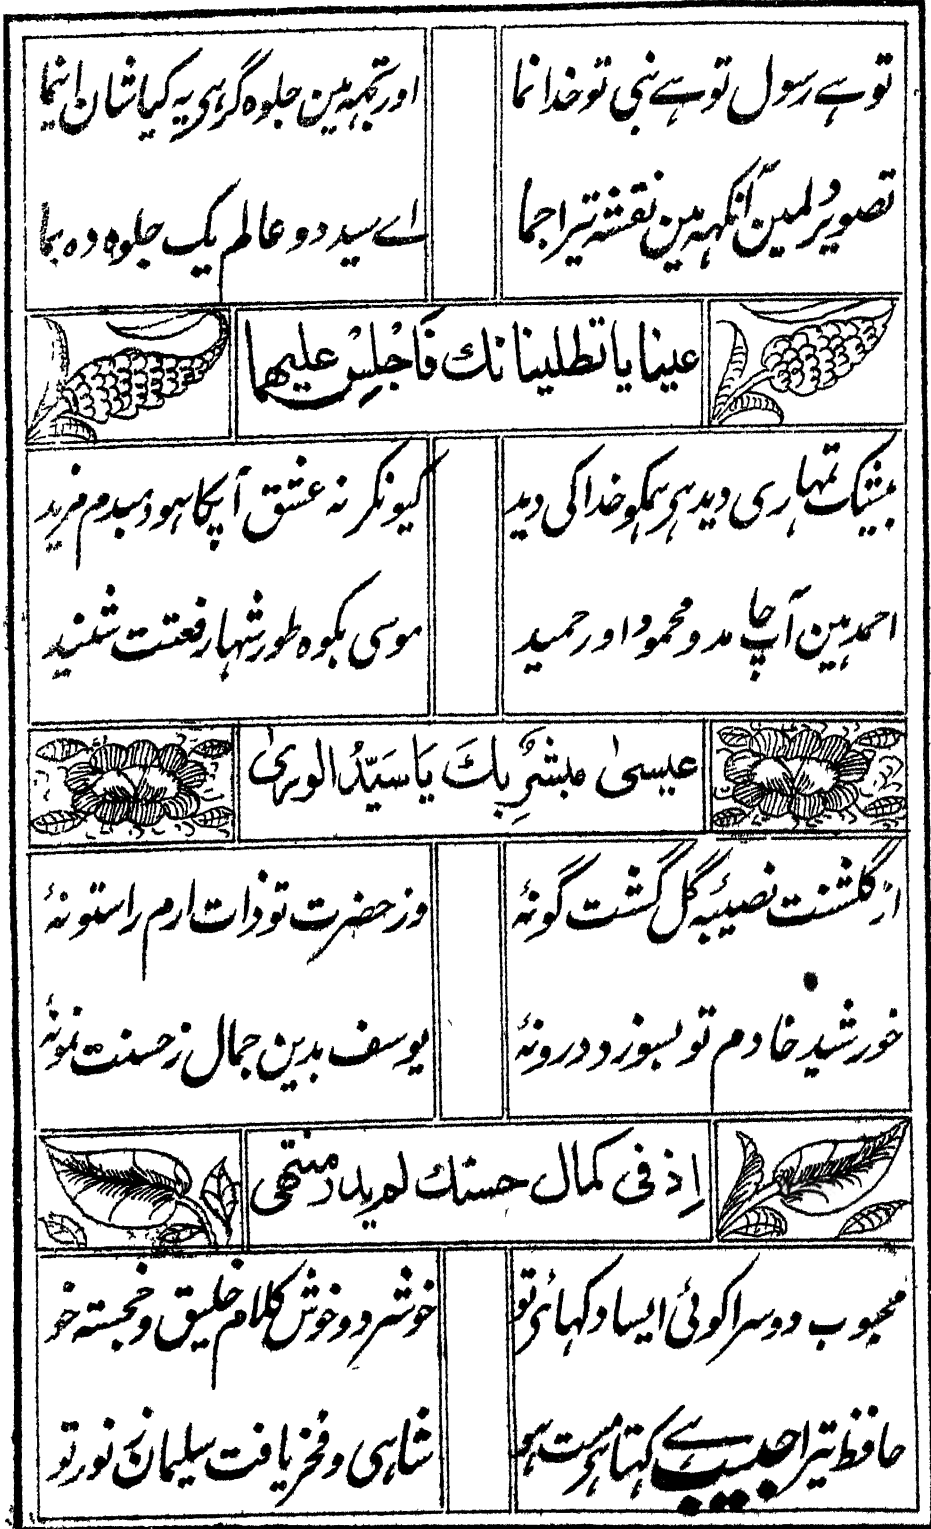 تو ہے رسول تو ہے نبی تو خدا نما
اور تجہہ مین جلوہ گر ہی یہ کیا شان انما
تصویر دلمین آنکہہ مین نقشہ تیرا جما
اے سید دو عالم یک جلوہ دہ بما
عینا یا تطلینا نك فَاجْلِسْ علیھما
بیشک تمہاری دید ہی ہمکو خدا کی دید
کیونکر نہ عشق آپکا ہو دمبدم مزید
احمد ہین آپ حامد و محمود اور حمید
موسی بکوہ طور شہا رفعتت شنید
عیسیٰ مبشرٌ بِكَ یَا سَیِّدُ الوریٰ
از گلشنت نصیبۂ گل گشت گونۂ
وز حضرت تو ذات ارم راستونۂ
خورشید خادم تو بسوز و درونۂ
یوسف بدین جمال ز حسنت نمونۂ
اِذ فی کمال حسنك لم یلد منتھی
محبوب دوسرا کوئی ایسا دکہائی تو
خوشرو و خوش کلام خلیق و خجستہ خو
حافظ تیرا حبیب ہے کہتا ہی مست ہو
شاہی و فخر یافت سلیمان ز نور تو